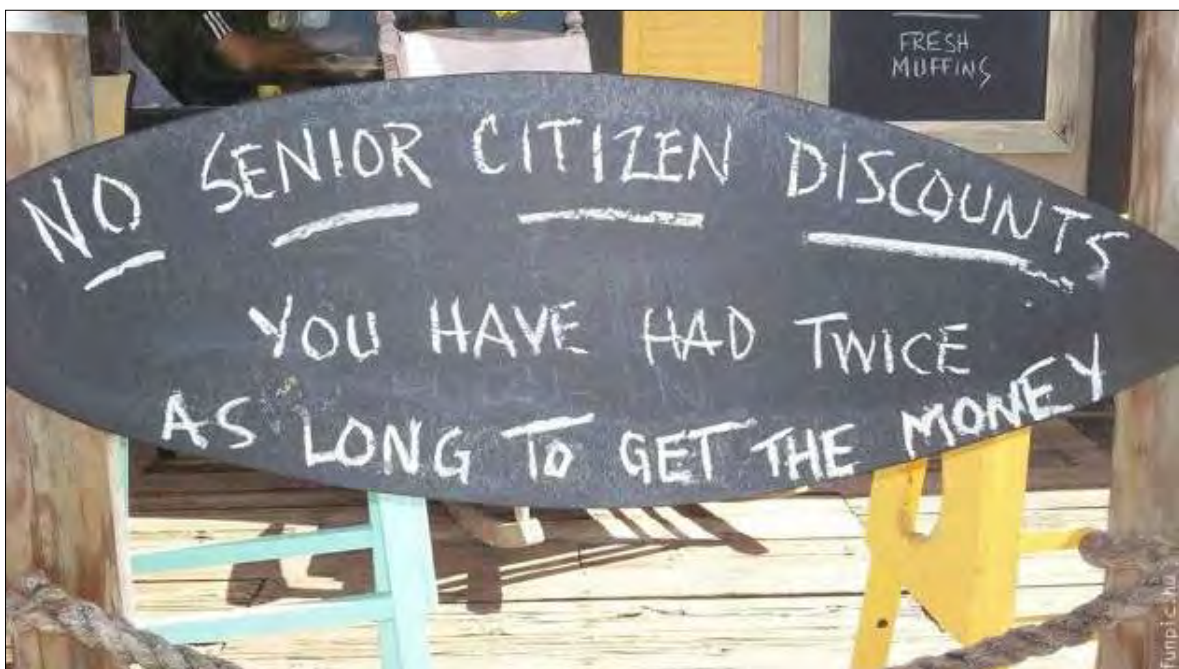 FRESH
MUFFINS
NO SENIOR CITIZEN DISCOUNTS
YOU HAVE HAD TWICE
AS LONG TO GET THE MONEY
funpic.hu